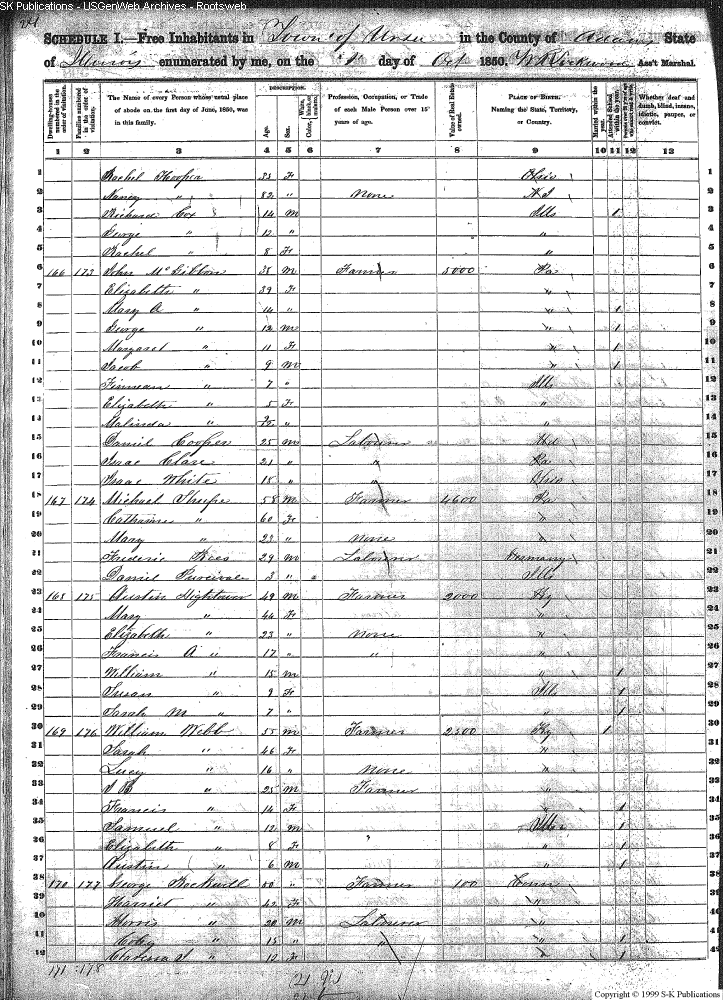 SK Publications - USGenWeb Archives - Rootsweb
SCHEDULE I.—Free Inhabitants in Town of Ursa in the County of Adams State
of Illinois enumerated by me, on the 1st day of Oct 1850. Kirkwood Ass't Marshal.
DESCRIPTION.
Dwelling-houses numbered in the order of visitation. Families numbered in the order of visitation. The Name of every Person whose usual place of abode on the first day of June, 1850, was in this family. Age. Sex. White, black, or mulatto. Color, Profession, Occupation, or Trade of each Male Person over 15 years of age. Value of Real Estate owned. PLACE OF BIRTH. Naming the State, Territory, or Country. Married within the year. Attended School within the year. Whether deaf and dumb, blind, insane, idiotic, pauper, or convict.
1 2 3 4 5 6 7 8 9 10 11 12 13
1 Rachel Hooper 33 F Ohio 1
2 Nancy " 82 " None N J 2
3 Richard Cox 14 M Ills 1 3
4 George " 12 " " 4
5 Rachel " 8 F " 5
6 166 173 John McGibbon 38 M Farmer 5000 Pa 6
7 Elizabeth " 39 F " 7
8 Mary A " 14 " " 1 8
9 George " 12 M " 1 9
10 Margaret " 11 F " 1 10
11 Jacob " 9 M " 1 11
12 " 7 " Ills 12
13 Elizabeth " 5 F " 13
14 Malinda " " " 14
15 Daniel Cooper 25 M Labourer 15
16 Isaac Clare 21 " " Pa 16
17 Isaac White 18 " " Ohio 17
18 167 174 Michael Shupe 58 M Farmer 4600 Pa 18
19 Catharine " 60 F " 19
20 Mary " 23 " None " 20
21 Frederic 29 M Labourer Germany 21
22 Daniel Purcival 3 " Ills 22
23 168 175 Austin Hightower 49 M Farmer 2000 Ky 23
24 Mary " 44 F " 24
25 Elizabeth " 23 " None " 25
26 Francis A " 17 " " " 26
27 William " 15 M " 1 27
28 Susan " 9 F Ills 1 28
29 Sarah M " 7 " " 1 29
30 169 176 William Webb 55 M Farmer 2500 Ky 1 30
31 Sarah " 46 F " 31
32 Lucy " 16 " None " 32
33 " 25 M Farmer " 33
34 Francis " 14 F " 1 34
35 Samuel " 12 M " Ills 1 35
36 Elizabeth " 8 F " 1 36
37 Austin " 6 M " 1 37
38 170 177 George Rockwell 50 " Farmer 100 Conn 38
39 Harriet " 42 F " 39
40 " 20 M Labourer " 40
41 " 15 " " " 1 41
42 Clarissa J " 10 F " 1 42
171 178
Copyright © 1999 S-K Publications